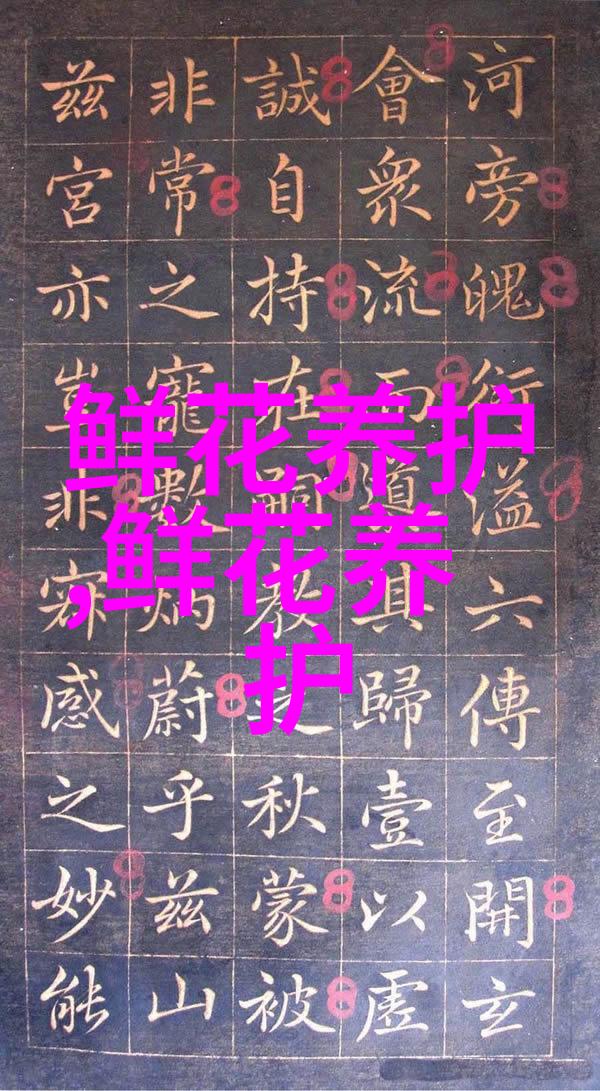 鲜花养护
,鲜花养
护
河旁魄衍溢六傳至開玄
會衆流而道其歸壹以虛
誠自持在嗣教秋蒙被
非常之寵數炳蔚乎兹山
兹宮亦豈非寂感之妙能